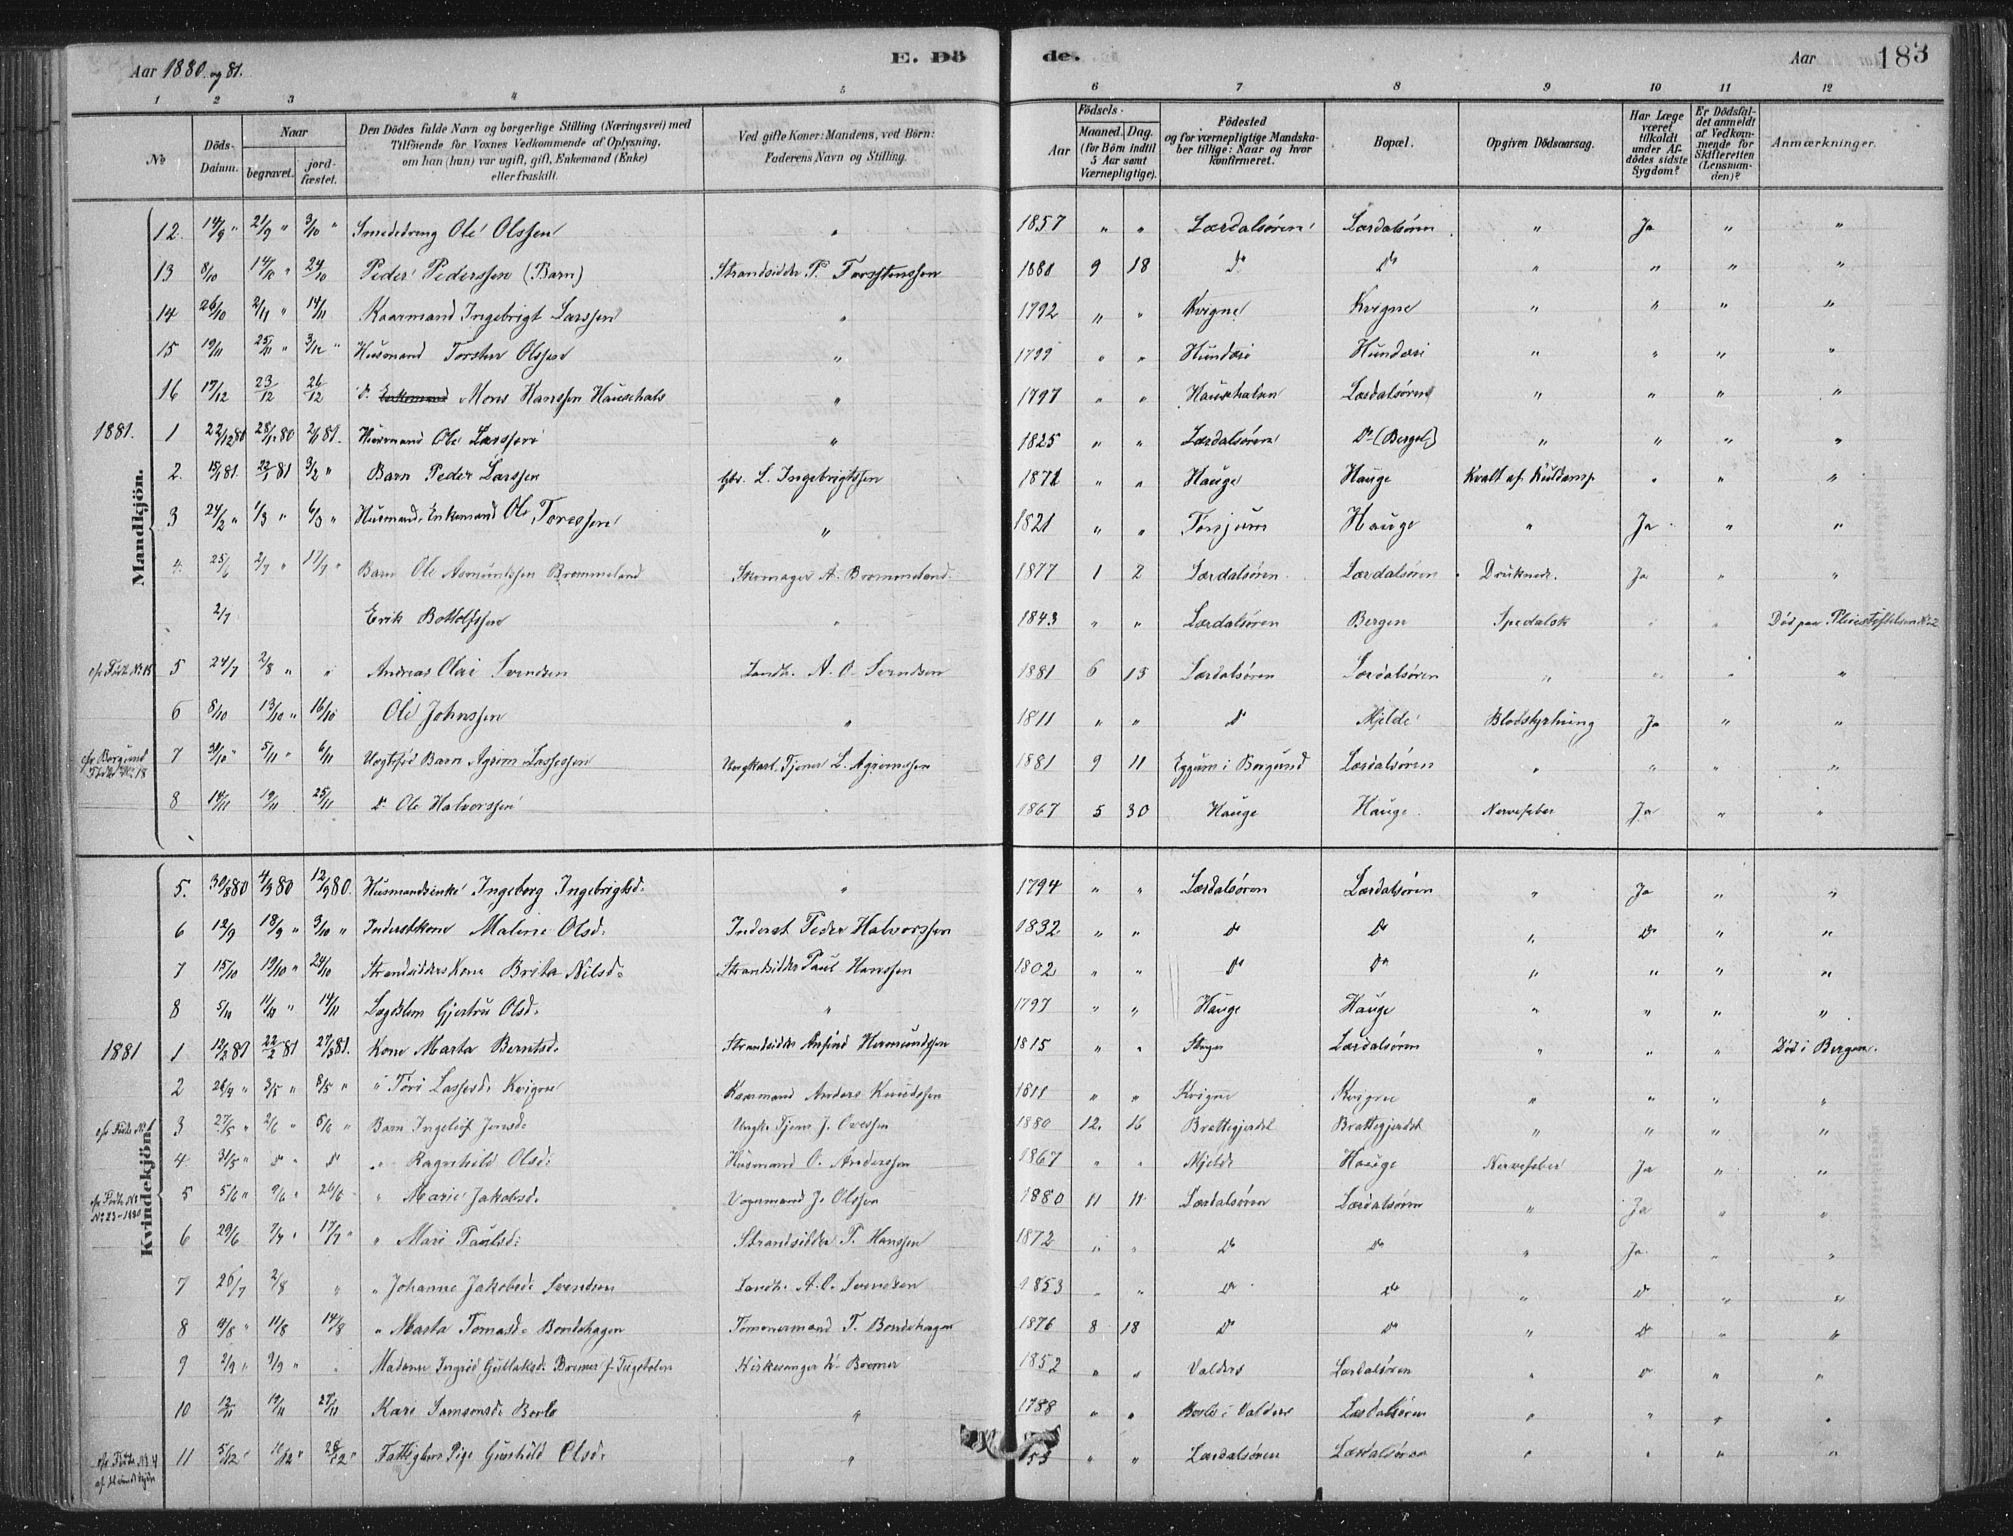 Aar 1880 og 81. E. Dö de. Aar 183
1 2 3 4 5 6 7 8 9 10 11 12
No
Döds-Datum.
Naar
begravet.
jord-fæstet.
Den Dödes fulde Navn og borgerlige Stilling (Næringsvei) med
Tilföiende for Voxnes Vedkommende af Oplysning,
om han (hun) var ugift, gift, Enkemand (Enke)
eller fraskilt.
Ved gifte Koner: Mandens, ved Börn:
Faderens Navn og Stilling.
Födsels-
Aar
Maaned. Dag.
(for Börn indtil
5 Aar samt
Værnepligtige).
Födested
og for værnepligtige Mandska-
ber tillige: Naar og hvor
konfirmeret.
Bopæl.
Opgiven Dödsaarsag.
Har Læge
været
tilkaldt
under Af-
dödes sidste
Sygdom?
Er Dödsfal-
det anmeldt
af Vedkom-
mende for
Skifteretten
(Lensman-
den)?
Anmærkninger.
Mandkjön.
12. 14/9 " 21/9 " 3/10 " Smededreng Ole Olssen " 1857 " " Lærdalsøren Lærdalsøren " Ja " "
13 8/10 14/10 " 24/10 Peder Pederssen (Barn) Strandsidder P. Torstenssen 1880 9 18 Do Do " " " "
14 26/10 2/11 " 14/11 Kaarmand Ingebrigt Larssen " 1792 " " Kvigne Kvigne " " " "
15 19/11 25/11 " 3/12 " Husmand Torsten Olssen " 1799 " " Hunderi Hunderi " " " "
16 17/12 23/12 26/12 Do Enkemand Mons Hanssen Haugehals " 1797 " " Lærdalsøren " " " "
1881. 1 22/12 80 28/12 80 2/1 81. Husmand Ole Larssen " 1825 " " Lærdalsøren Do " " " "
2. 15/1 81. 22/1 81 3/2 " Barn Peder Larssen Gbr. L. Ingebrigtssen 1871 " " Hauge Hauge Kvalt af Kuldamp " " "
3 24/2 " 1/3 " 6/3 " Husmand, Enkemand Ole Toressen " 1821 " " Tønjum Hauge " Ja " "
4. 25/6 2/7 " 17/7 " Barn Ole Asmundssen Brommeland Skomager A. Brommeland. 1877 1 2 Lærdalsøren Lærdalsøren Druknede. Ja " "
2/7 Erik Bottolfssen " 1843 " " Lærdalsøren Bergen Spedalsk " " Død paa Pleiestiftelsen No 2
cfr Fødte No 15 5 24/7 2/8 " " Andreas Olai Svendsen Landh. A. O. Svendsen 1881 6 13 Lærdalsøren Lærdalsøren " " " "
6 8/10 13/10 " 16/10 Ole Johnssen " 1811 " " Do Mjelde Blodstyrtning Ja " "
cfr Borgund Fødte No 18 7 30/10 " 5/11 " 6/11 Uægtefød Barn Agrim Lassessen Ungkarl Tjener L. Agrimssen 1881 9 11 Eggum i Borgund Lærdalsøren " " " "
8 14/11 19/11 25/11 Do Ole Halvorssen 1867 5 30 Hauge Hauge. Nervefeber Ja " "
Kvindekjön.
5. 30/8 80 4/9 80 12/9 80. Husmandsenke Ingeborg Ingebrigtsd. " 1794 " " Lærdalsøren Lærdalsøren " Ja " "
6 12/9 18/9 " 3/10 " Inderstkone Malene Olsd. Inderst Peder Halvorssen 1832 " " Do Do " Do " "
7 15/10 19/10 " 24/10 Strandsidders Kone Brita Nilsd. Strandsidder Paul Hanssen 1802 " " Do Do " " " "
8 5/11 11/11 " 14/11 Lægdslem Gjertru Olsd. " 1797 " " Hauge Hauge " " " "
1881 1 12/2 81 22/2 81 27/2 81. Kone Marta Berntsd. Strandsidder Anfind Hermundssen 1815 " " Lærdalsøren " " " Død i Bergen.
2 26/4 " 3/5 " 8/5 " " Tori Lassesd. Kvigne Kaarmand Anders Knudssen 1811 " " Kvigne Kvigne " " " "
cfr Fødte No 1 3 27/5 " 2/6 " 5/6 " Barn Ingeleif Jensd. Ungk. Tjener J. Ovessen 1880 12. 16 Brattegjerdet Brattegjerdet " " " "
4 31/5 " Do " Do " Ragnhild Olsd. Husmand O. Anderssen 1867 " " Mjelde Hauge Nervefeber Ja " "
No 23-1880 5 5/6 " 9/6 " 26/6 " Marie Jakobsd. Vognmand J. Olssen 1880 11 11 Lærdalsøren Lærdalsøren " Ja " "
6 29/6 7/7 " 17/7 " " Mari Paulsd. Strandsidder P. Hanssen 1872 " " Do Do " Ja " "
7 26/7 2/8 " " Johanne Jakobsd. Svendsen Landh. A. O. Svendsen 1853 " " Do Do " Do " "
8 4/8 11/8 14/8 " Marta Tomasd. Bordehagen Tømmermand T. Bordehagen 1876 8 18 Do Do " Do " "
9 2/9 9/9 " " Madame Ingrid Gullaksd. Bremer f. Kirkesanger Bremer 1852 " " Valders Lærdalsøren " Do " "
10 12/11 19/11 27/11 Kari Samsonsd. Borlo " 1788 " " Borlo i Valders Lærdalsøren " " " "
11 5/12 " 11/12 " 28/12 " Fattiglem Pige Gunhild Olsd. " 53 " " Lærdalsøren Lærdalsøren " " " "